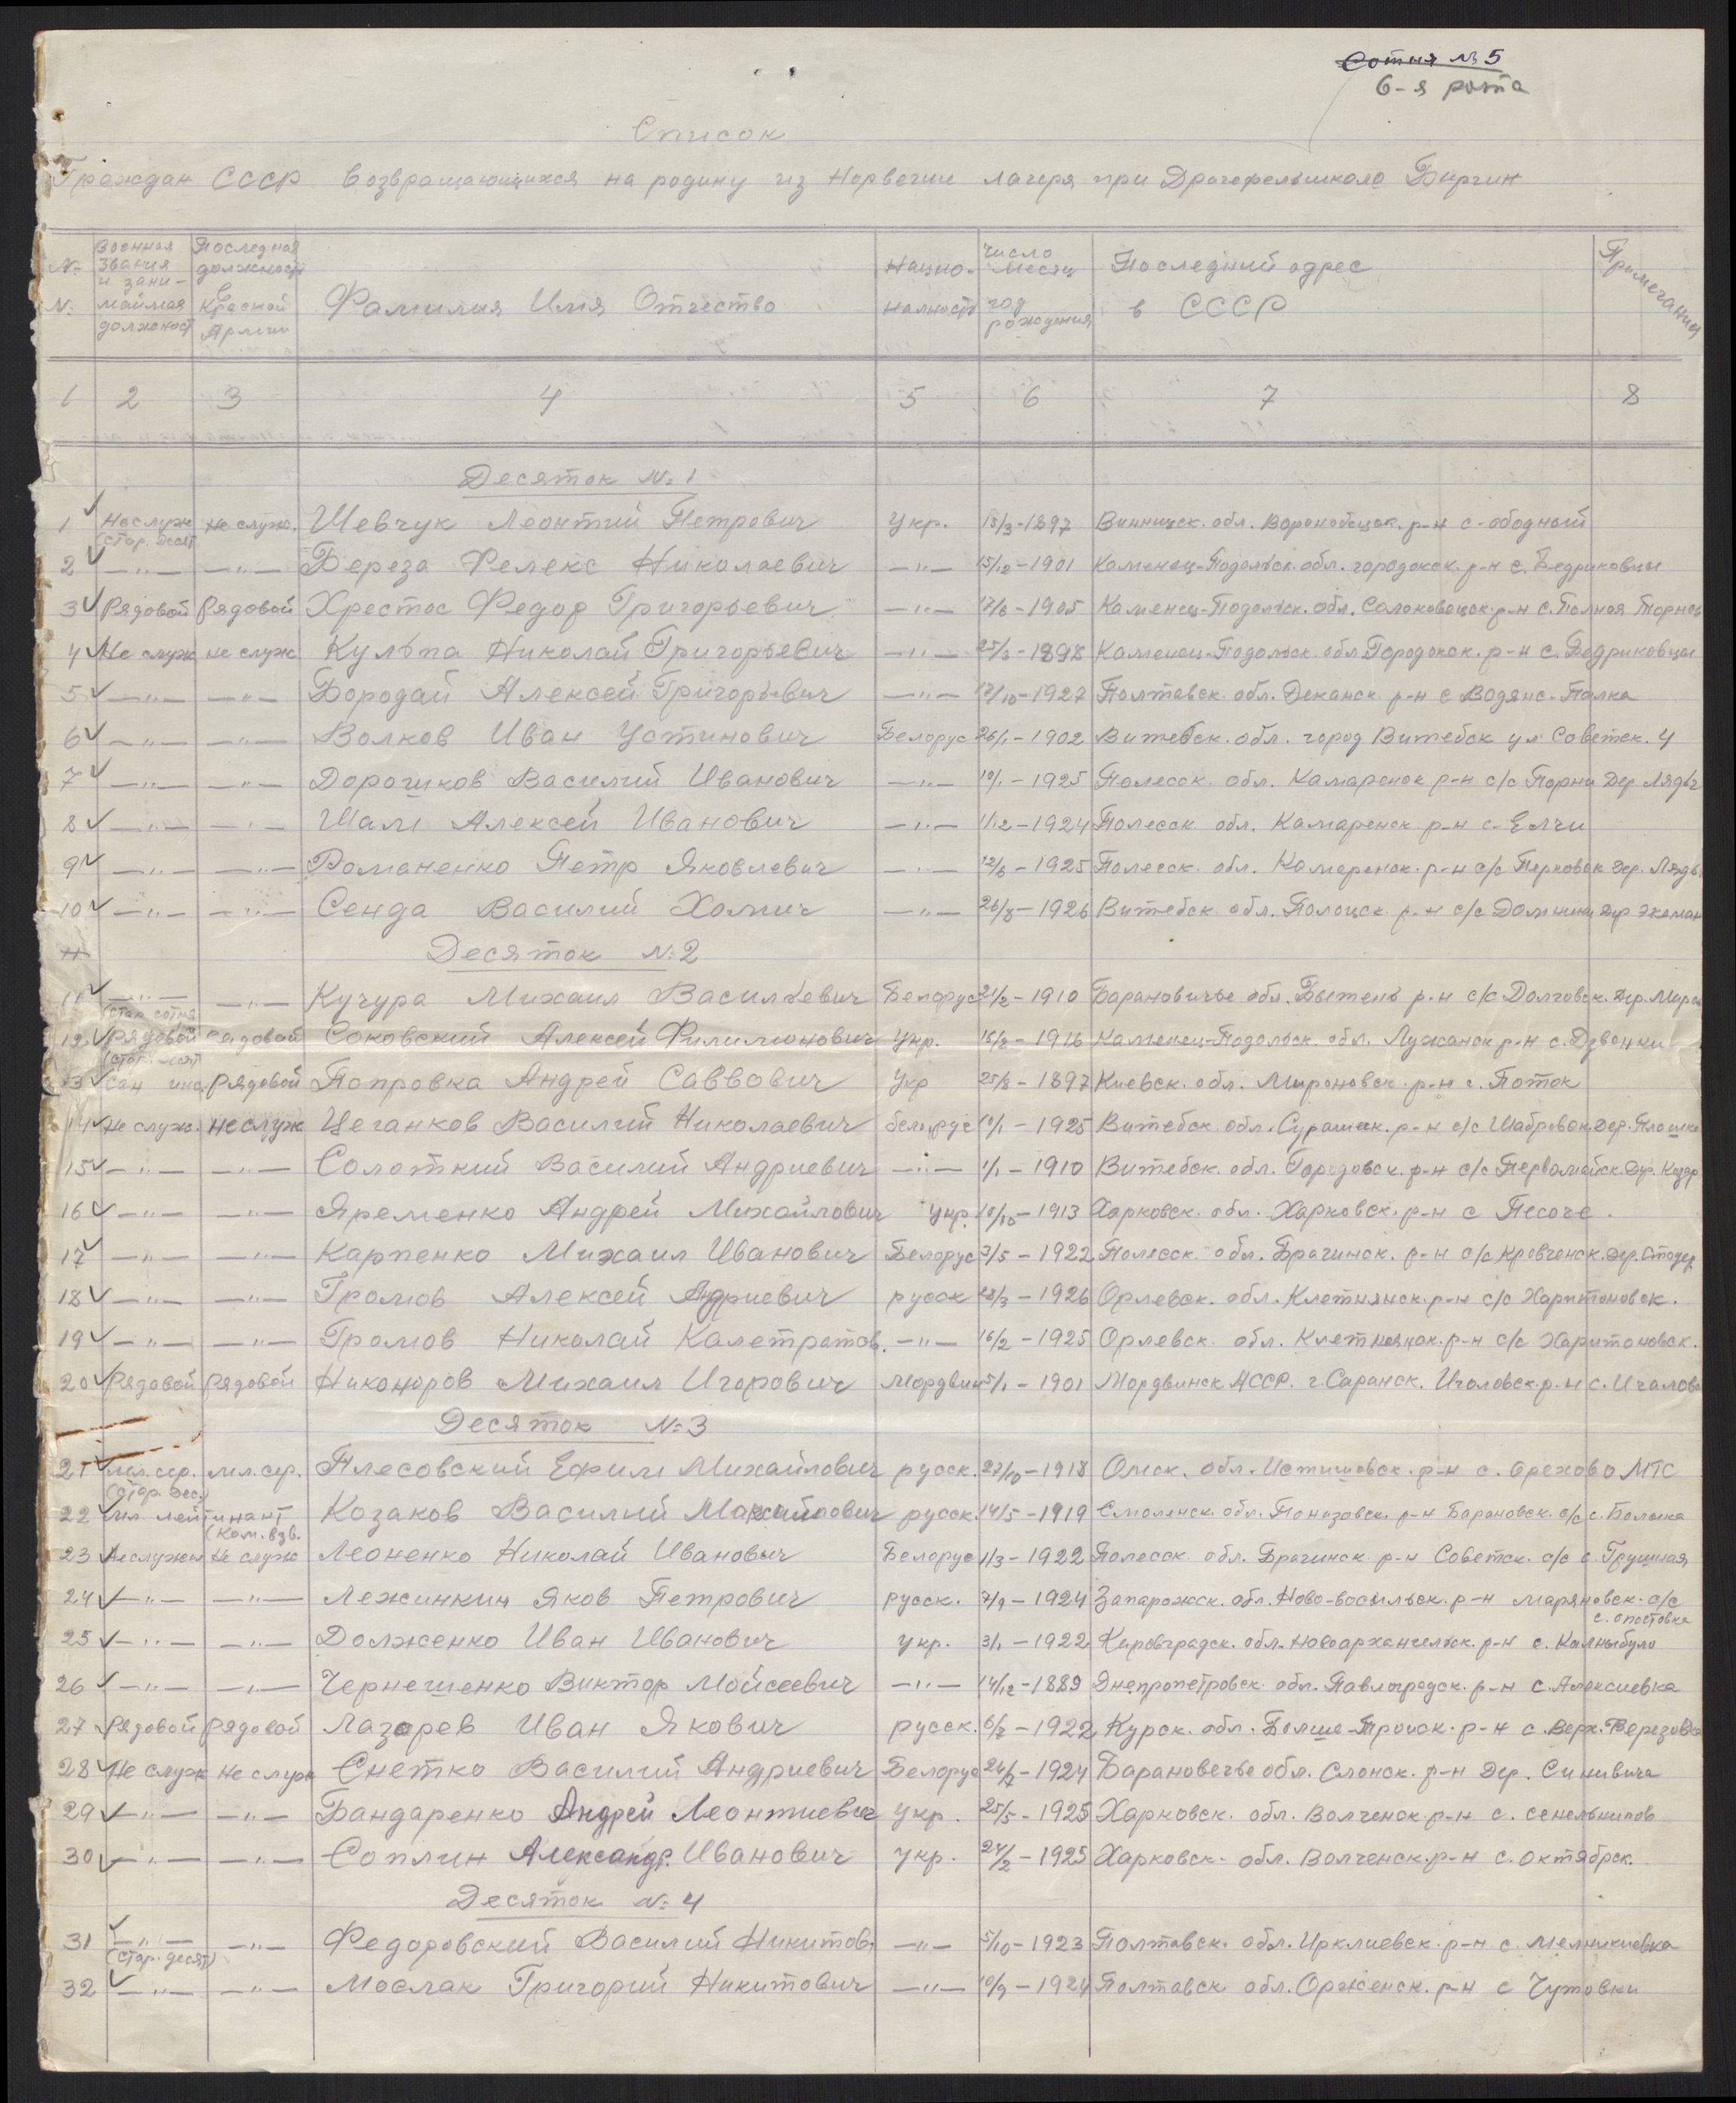 Сотня № 5
6-я рота
Список
Граждан СССР возвращающихся на родину из Норвегии лагеря при Драгефельшколе Бирген
№ № Военная звания и занимаймая должност Последная должность в Красной Армии Фамилия Имя Отчество Национальность число месяц год рождения Последний адрес в СССР Примечания
1 2 3 4 5 6 7 8
Десяток № 1
1 Не служ (стар. десят. не служ. Шевчук Леонтий Петрович Укр. 15/3-1897 Винницск. обл. р-н с-ободный
2 —"— —"— Береза Фелекс Николаевич —"— 15/12-1901 Каменец-Подольск. обл. городокск. р-н с. Бедриковцы
3 Рядовой Рядовой Хрестос Федор Григорьевич —"— 17/6-1905 Каменец-Подольск. обл. р-н с.
4 Не служ не служ Культа Николай Григорьевич —"— 25/3-1898 Каменец-Подольск. обл Городокск. р-н с. Бедриковцы
5 —"— —"— Бородай Алексей Григорьевич —"— 17/10-1927 Полтавск. обл. Деканск. р-н с Водянс-Палка
6 —"— —"— Волков Иван Устинович Белорус 26/1-1902 Витебск. обл. город Витебск ул Советск. 4
7 —"— —"— Дорошков Василий Иванович —"— 10/1-1925 Полесск. обл. Камаренск р-н с/с Порни Дер Ляды
8 —"— —"— Шам Алексей Иванович —"— 1/12-1924 Полесск обл. Камаренск. р-н с. Елчи
9 —"— —"— Романенко Петр Яковлевич —"— 12/6-1925 Полесск. обл. Камаренск. р-н с/с дер. Ляды
10 —"— —"— Сенда Василий Хомич —"— 26/8-1926 Витебск. обл. Полоцск. р-н с/с Дер Экиман
11
Десяток № 2
11 —"— (стар. сотня —"— Кучура Михаил Васильевич Белорус 21/2-1910 Барановичье обл. Бытень р-н с/с Долговск. Дер.
12 Рядовой (стар. десят Рядовой Соковский Алексей Филимонович Укр. 15/2-1916 Каменец-Подольск. обл. Лужанск р-н с. Дзвонки
13 Сан инс. Рядовой Попровка Андрей Саввович Укр 25/8-1897 Киевск. обл. Мироновск. р-н с. Поток
14 Не служ. не служ Цеганков Василий Николаевич белорус 10/1-1925 Витебск. обл. Сурашск. р-н с/с Дер.
15 —"— —"— Солоткий Василий Андриевич —"— 1/1-1910 Витебск. обл. Городовск. р-н с/с Первомайск. Дер.
16 —"— —"— Яременко Андрей Михайлович Укр. 10/10-1913 Харковск. обл. Харковск. р-н с Песоче.
17 —"— —"— Карпенко Михаил Иванович Белорус 7/5-1922 Полесск. обл. Брагинск. р-н с/с Кривченск. дер.
18 —"— —"— Громов Алексей Андриевич русск 28/3-1926 Орлевск. обл. Клетнянск. р-н с/с Харитоновск.
19 —"— —"— Громов Николай Калетратов. —"— 16/2-1925 Орлевск. обл. Клетнянск. р-н с/с Харитоновск.
20 Рядовой Рядовой Никоноров Михаил Игорович Мордвин 5/1-1901 Мордвинск АССР. г. Саранск. р-н с.
Десяток № 3
21 мл. сер. (стар. дес.) мл. сер. Плесовский Ефим Михайлович русск. 27/10-1918 Омск. обл. р-н с. Орехово МТС
22 мл. лейтинант (Ком. взв. Козаков Василий русск. 14/5-1919 Смоленск. обл. р-н Барановск. с/с с.
23 Не служил Не служ Леоненко Николай Иванович Белорус 1/3-1922 Полесск обл. Брагинск. р-н Советск. с/с с. Грушная
24 —"— —"— Лежинкин Яков Петрович русск. 7/9-1924 Запарожск. обл. Ново-Восильск. р-н Маряновск. с/с с. Опостовка
25 —"— —"— Долженко Иван Иванович укр. 3/1-1922 Кировградск. обл. Новоархангельск. р-н с. Калныбуло
26 —"— —"— Чернешенко Виктор Мойсеевич —"— 14/12-1889 Днепропетровск. обл. Павлоградск. р-н с. Алексиевка
27 Рядовой Рядовой Лазарев Иван Якович русск. 6/7-1922 Курск. обл. Болше-Троиск. р-н с. Верх. Березовка
28 Не служ Не служ Снетко Василий Андриевич Белорус 24/7-1924 Барановечье обл. Слонск. р-н Дер. Синивиче
29 —"— —"— Бандаренко Андрей Леонтиевич Укр. 25/5-1925 Харковск. обл. Волченск. р-н с.
30 —"— —"— Соплин Александр. Иванович укр. 24/2-1925 Харковск. обл. Волченск. р-н с. октябрск.
Десяток № 4
31 —"— (Стар. десят) —"— Федоровский Василий Никитов. —"— 5/10-1923 Полтавск. обл. Ирклиевск. р-н с.
32 —"— —"— Мослак Григорий Никитович —"— 10/9-1924 Полтавск обл. Орженск. р-н с Чутовки